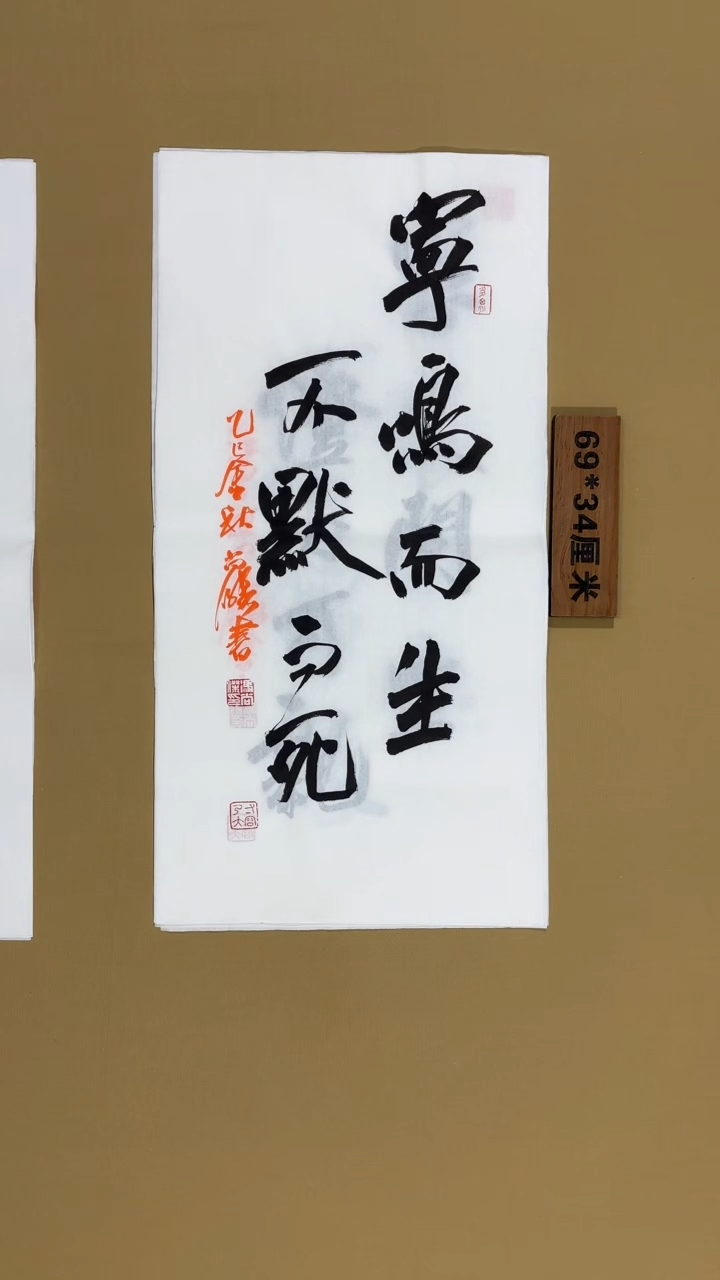 寧鳴而生
不默而死
乙巳金秋
書
69*34厘米